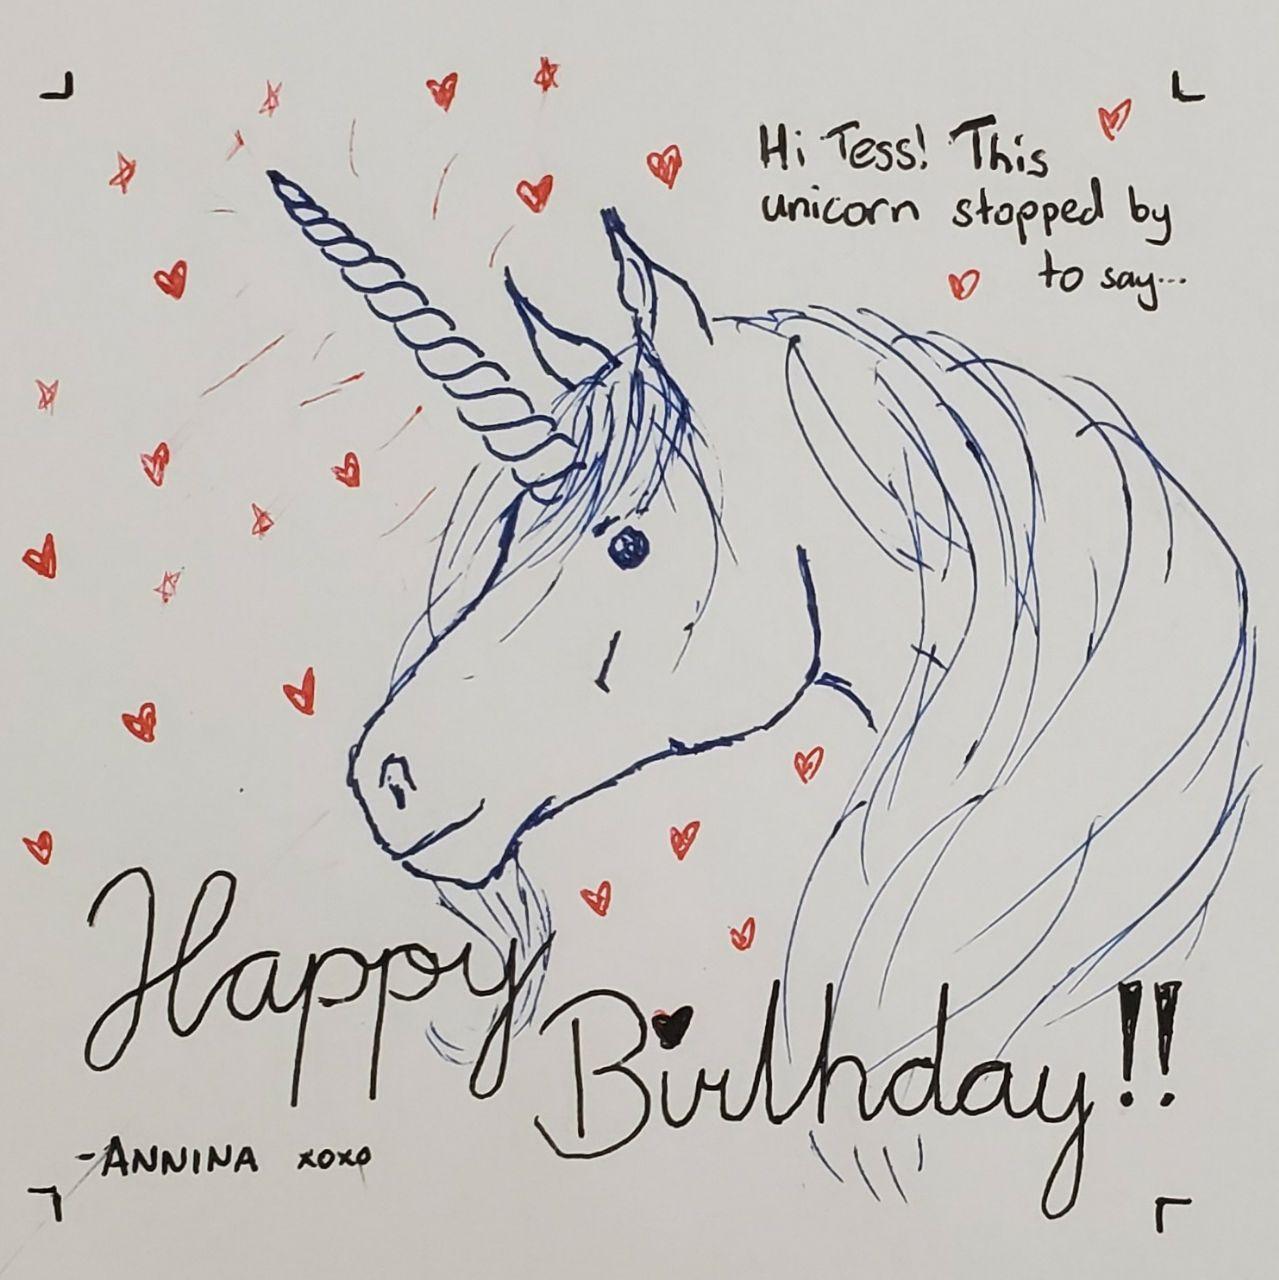 Hi Tess! This
unicorn stopped by
to say...
Happy
Birthday!!
-ANNINA xoxo